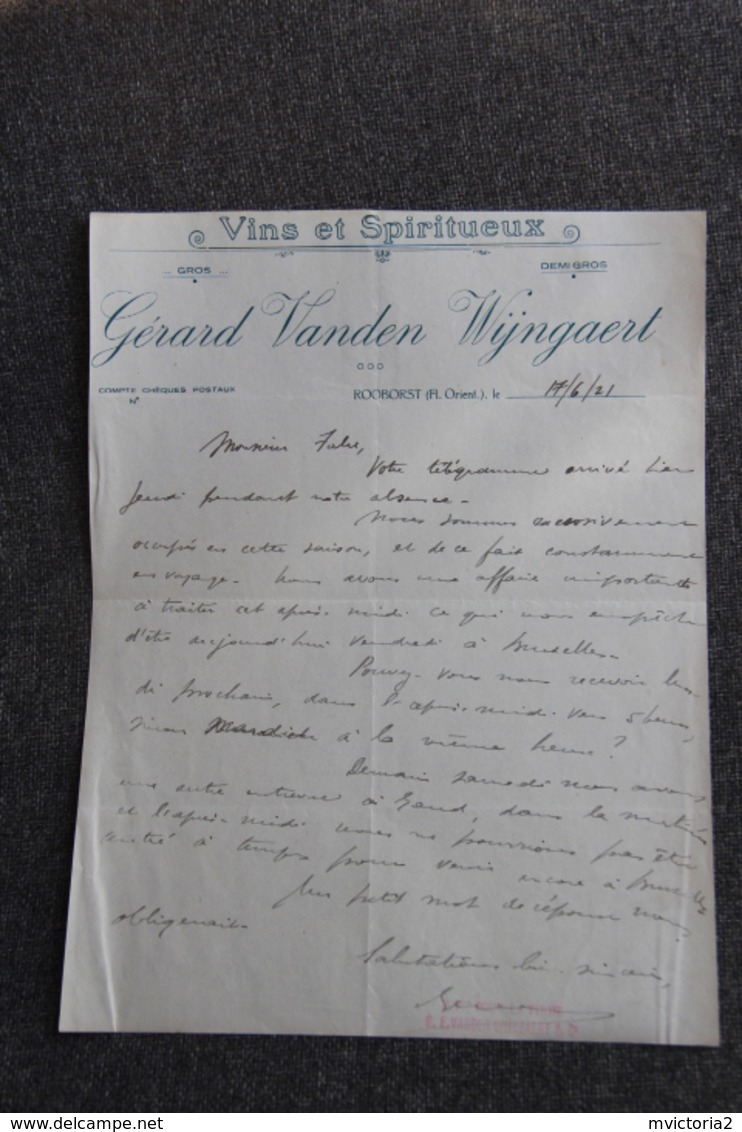 Vins et Spiritueux
... GROS ...
DEMI GROS
Gérard Vanden Wijngaert
COMPTE CHÈQUES POSTAUX
N°
ROOBORST (Fl. Orient.), le 17/6/21
Monsieur Fabre,
Votre télégramme arrivé hier
jeudi pendant notre absence -
Nous sommes excessivement
occupés en cette saison, et de ce fait constamment
en voyage - Nous avons une affaire importante
à traiter cet après-midi ce qui nous empêche
d'être aujourd'hui vendredi à Bruxelles -
Pouvez-vous nous recevoir lun-
di prochain, dans l'après-midi vers 5 heures,
sinon mardi à la même heure ?
Demain samedi nous avons
une autre entrevue à Gand, dans la matinée
et l'après-midi nous ne pourrions pas être
rentré à temps pour venir encore à Bruxelles
Un petit mot de réponse nous
obligerait -
Salutations bien sincères,
mvictoria2
delcampe.net